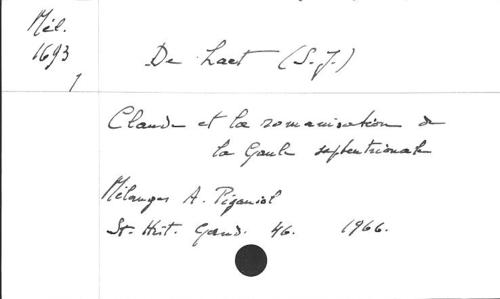 Mél.
1693
1
De Laet (S.J.)
Claude et la romanisation de
la Gaule septentrionale
Mélanges A. Piganiol
St. Hist. Gand. 46. 1966.